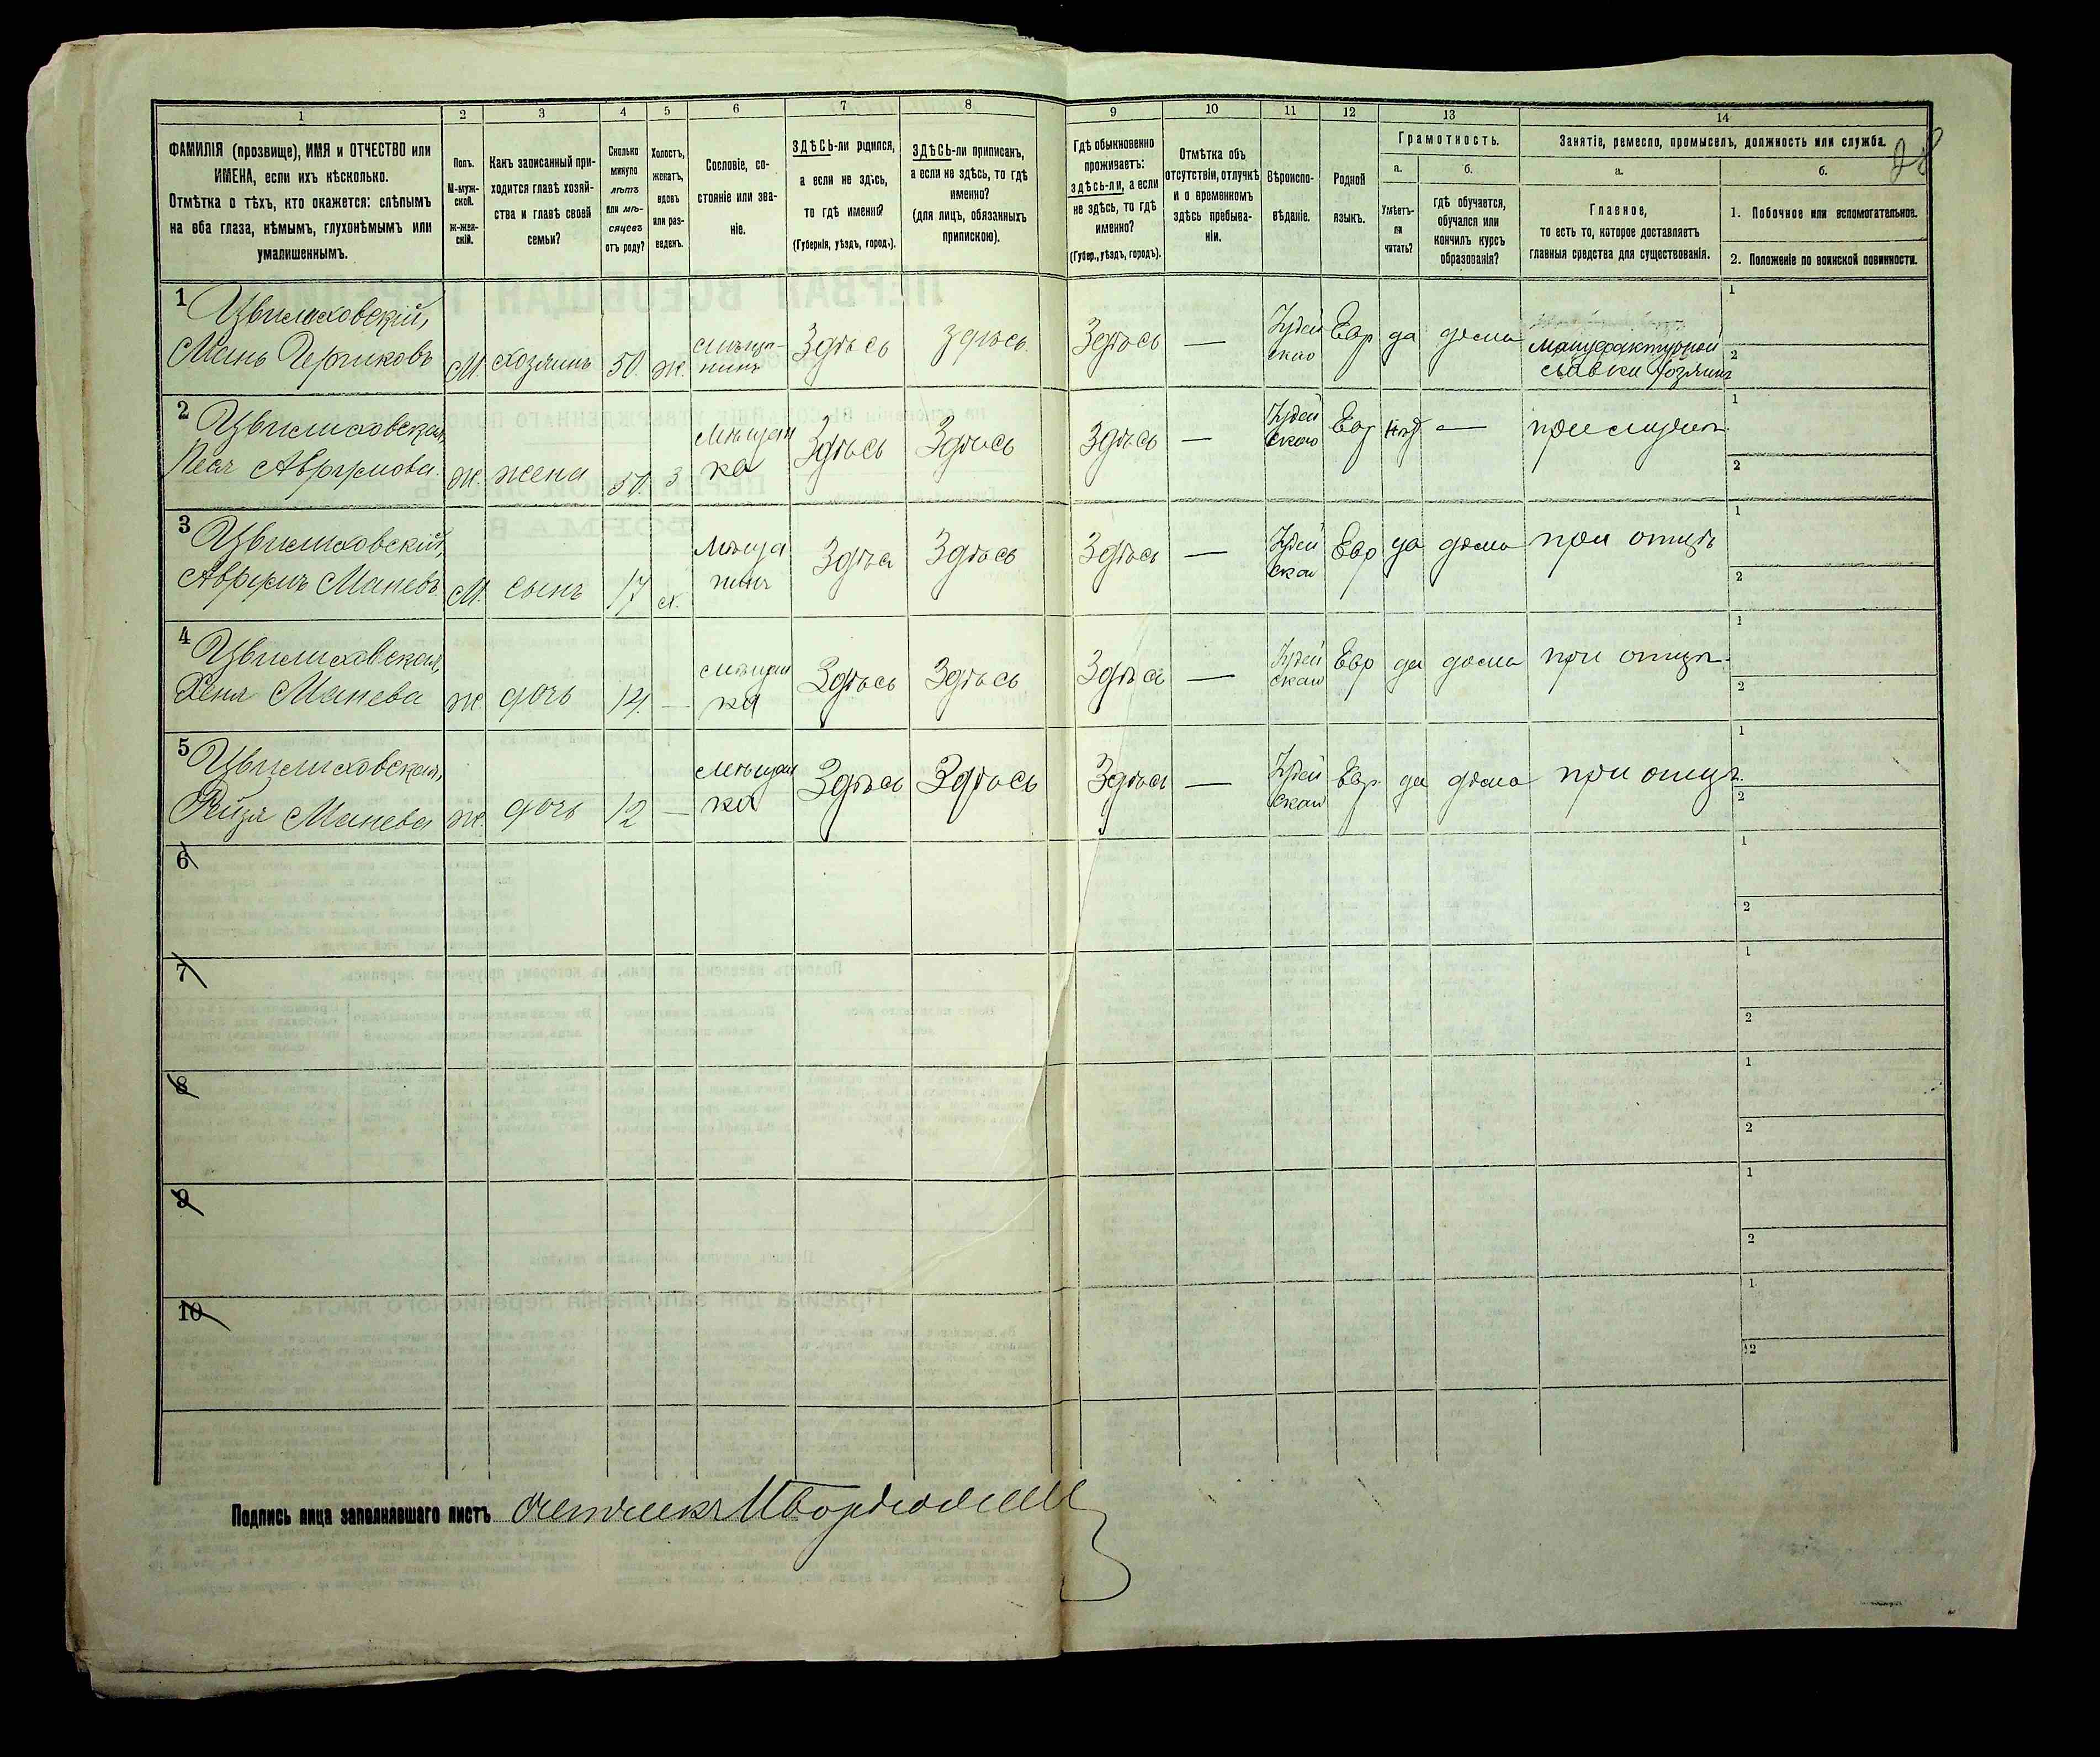 1 2 3 4 5 6 7 8 9 10 11 12 13 14
28
ФАМИЛІЯ (прозвище), ИМЯ и ОТЧЕСТВО или
ИМЕНА, если ихъ нѣсколько.
Отмѣтка о тѣхъ, кто окажется: слѣпымъ
на оба глаза, нѣмымъ, глухонѣмымъ или
умалишеннымъ.
Полъ.
М-муж-
ской.
Ж-жен-
скій.
Какъ записанный при-
ходится главѣ хозяй-
ства и главѣ своей
семьи?
Сколько
минуло
лѣтъ
или мѣ-
сяцевъ
отъ роду?
Холостъ,
женатъ,
вдовъ
или раз-
веденъ.
Сословіе, со-
стояніе или зва-
ніе.
ЗДѢСЬ-ли родился,
а если не здѣсь,
то гдѣ именно?
(Губернія, уѣздъ, городъ).
ЗДѢСЬ-ли приписанъ,
а если не здѣсь, то гдѣ
именно?
(для лицъ, обязанныхъ
припискою).
Гдѣ обыкновенно
проживаетъ:
здѣсь-ли, а если
не здѣсь, то гдѣ
именно?
(Губер., уѣздъ, городъ).
Отмѣтка объ
отсутствіи, отлучкѣ
и о временномъ
здѣсь пребыва-
ніи.
Вѣроиспо-
вѣданіе.
Родной
языкъ.
Грамотность.
а.
Умѣетъ-
ли
читать?
б.
гдѣ обучается,
обучался или
кончилъ курсъ
образованія?
Занятіе, ремесло, промыселъ, должность или служба.
а.
Главное,
то есть то, которое доставляетъ
главныя средства для существованія.
б.
1. Побочное или вспомогательное.
2. Положеніе по воинской повинности.
1 Цвилиховскій,
Мань Гершковъ М. хозяинъ 50. ж. мѣща-
нинъ Здѣсь Здѣсь Здѣсь — Іудей
ское Евр да дома мануфактурной
лавки хозяинъ
2 Цвилиховская,
Песя Аврумова. ж. жена 50. з мѣщан
ка Здѣсь Здѣсь Здѣсь — Іудей
ское Евр нѣт — при мужѣ
3 Цвилиховскій,
Аврумъ Маневъ М. сынъ 17 х. мѣща
нинъ Здѣсь Здѣсь Здѣсь — Іудей
ское Евр да дома при отцѣ
4 Цвилиховская,
Хеня Манева ж. дочь 14. — мѣщан
ка Здѣсь Здѣсь Здѣсь — Іудей
ское Евр да дома при отцѣ
5 Цвилиховская,
Рейзя Манева ж. дочь 12 — мѣщан
ка Здѣсь Здѣсь Здѣсь — Іудей
ское Евр да дома при отцѣ.
6
7
8
9
10
Подпись лица заполнявшаго листъ Счетчикъ